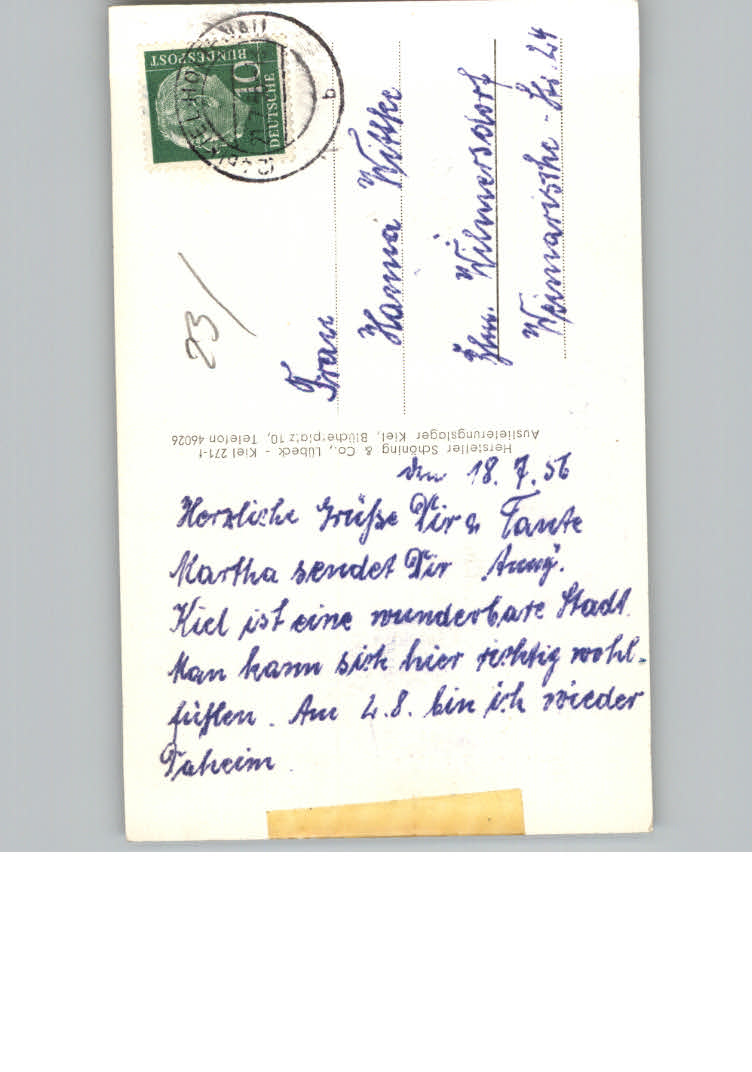 den 18.7.56
Herzliche Grüße Dir u Tante
Martha sendet Dir Anny.
Kiel ist eine wunderbare Stadt.
Man kann sich hier richtig wohl-
fühlen. Am 2.8. bin ich wieder
Daheim.
Hersteller Schöning & Co., Lübeck - Kiel 271-f
Auslieferungslager Kiel, Blücherplatz 10, Telefon 46026
Frau
Hanna Wittke
Wilmersdorf
Weimarische-Str. 24
23/
DEUTSCHE
BUNDESPOST
10
b